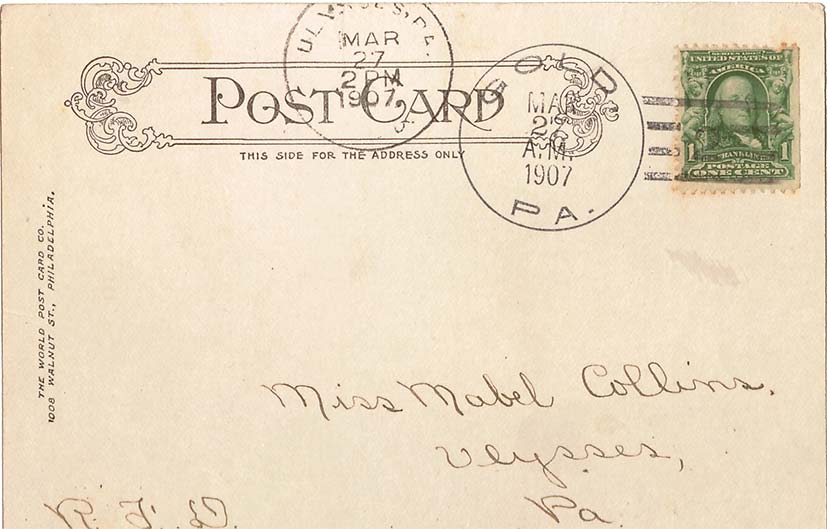 ULYSSES, PA.
MAR
27
2 PM
1907
POST CARD
THIS SIDE FOR THE ADDRESS ONLY
GOLD
MAR
A.M.
1907
PA.
SERIES 1902
UNITED STATES OF
AMERICA
1 FRANKLIN 1
POSTAGE
ONE CENT
THE WORLD POST CARD CO.
1008 WALNUT ST., PHILADELPHIA.
Miss Mabel Collins.
Ulysses,
R. F. D. Pa.